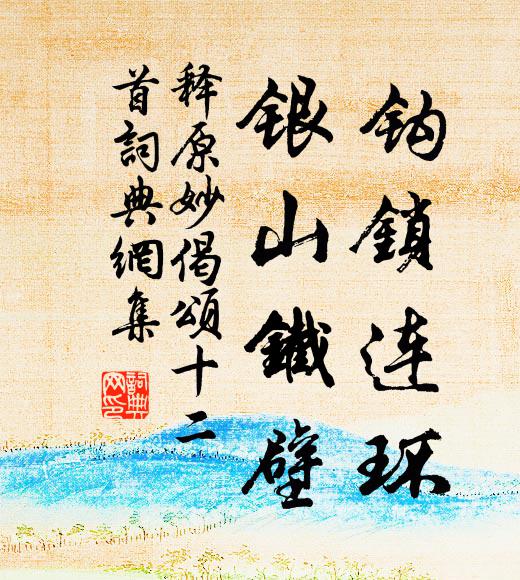 钩鎖连环
银山鐵壁
释原妙偈頌十二
首詞典網集
詞典
网印